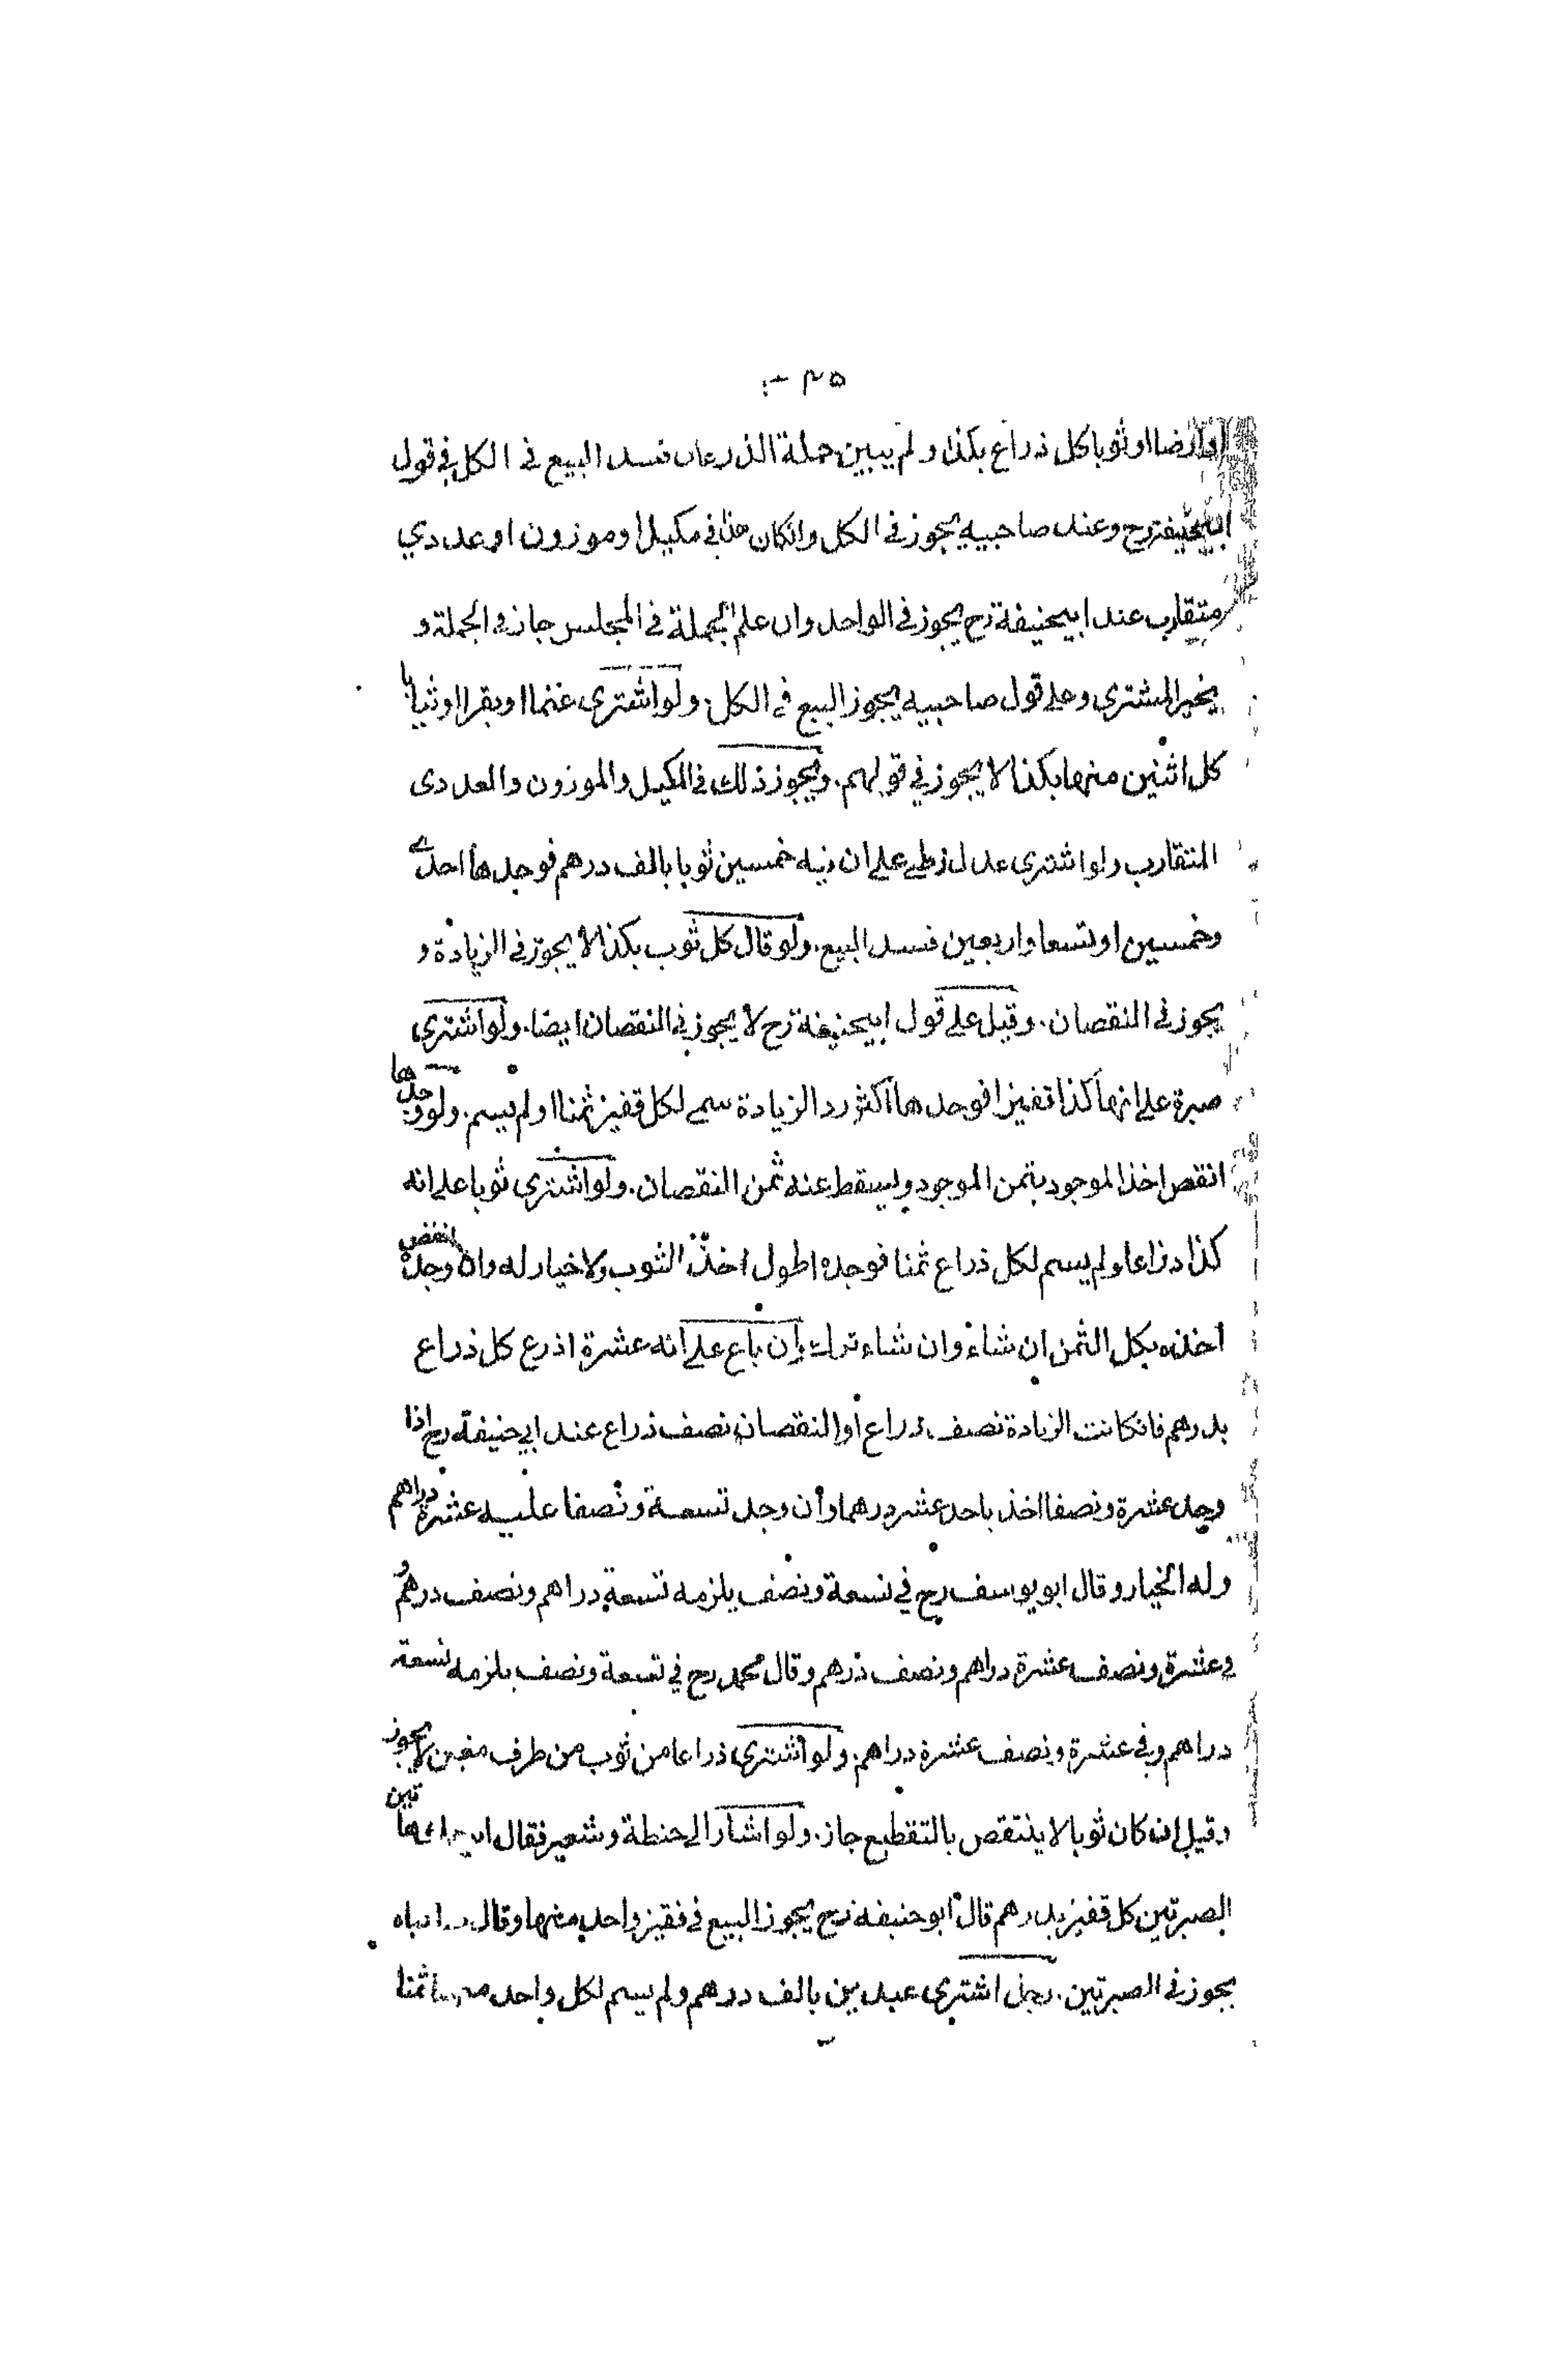 ٣٥
اوارضا اوثوبا كل ذراع بكذا ولم يبين جملة الذرعان فسد البيع في الكل في قول
ابيحنيفة رح وعند صاحبيه يجوز في الكل وانكان هذا في مكيل اوموزون اوعددي
متقارب عند ابيحنيفة رح يجوز في الواحد وان علم الجملة في المجلس جاز في الجملة و
يخير المشتري وعلى قول صاحبيه يجوز البيع في الكل. ولواشترى غنما اوبقرا اوثيابا
كل اثنين منها بكذا لا يجوز في قولهم. ويجوز ذلك في المكيل والموزون والعددى
المتقارب ولواشترى عدل زطي على ان فيه خمسين ثوبا بالف درهم فوجدها احدى
وخمسين اوتسعا واربعين فسد البيع. ولوقال كل ثوب بكذا لا يجوز في الزيادة و
يجوز في النقصان. وقيل على قول ابيحنيفة رح لا يجوز في النقصان ايضا. ولواشترى
صبرة على انها كذا قفيزا فوجدها اكثر رد الزيادة سمى لكل قفيز ثمنا اولم يسم. ولووجدها
انقص اخذ الموجود بثمن الموجود ويسقط عنه ثمن النقصان. ولواشترى ثوبا على انه
كذا ذراعا ولم يسم لكل ذراع ثمنا فوجده اطول اخذ الثوب ولاخيار له وان وجده انقص
اخذه بكل الثمن ان شاء وان شاء ترك وان باع على انه عشرة اذرع كل ذراع
بدرهم فانكانت الزيادة نصف ذراع اوالنقصان نصف ذراع عند ابي حنيفة رح اذا
وجد عشرة ونصفا اخذ باحد عشر درهما وان وجد تسعة ونصفا عليه عشرة دراهم
وله الخيار وقال ابو يوسف رح في تسعة ونصف يلزمه تسعة دراهم ونصف درهم و
في عشرة ونصف عشرة دراهم ونصف درهم وقال محمد رح في تسعة ونصف يلزمه تسعة
دراهم وفي عشرة ونصف عشرة دراهم. ولواشترى ذراعا من ثوب من طرف معين لا يجوز
وقيل ان كان ثوبا لا ينتقص بالتقطيع جاز. ولواشار الى حنطة وشعير فقال هاتين
الصبرتين كل قفيز بدرهم قال ابو حنيفة رح يجوز البيع في قفيز واحد منها وقال
يجوز في الصبرتين. رجل اشترى عبدين بالف درهم ولم يسم لكل واحد ثمنا